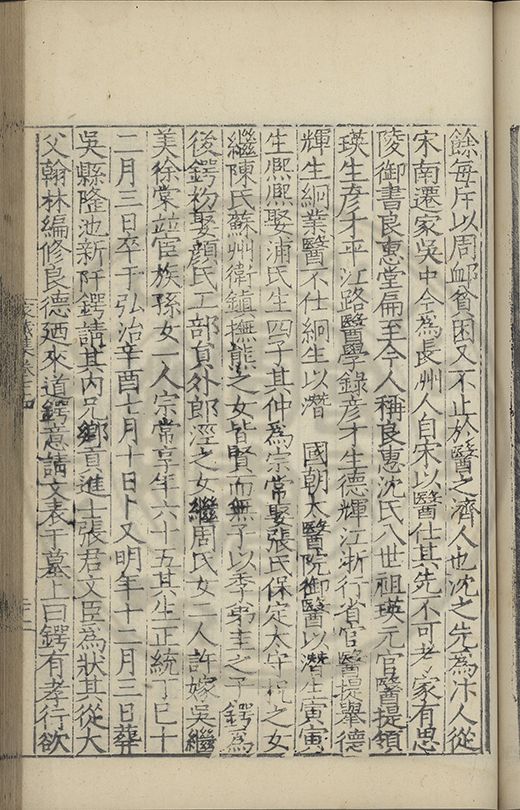 餘每斥以周卹貧困又不止於醫之濟人也沈之先爲汴人從
宋南遷家吳中今爲長州人自宋以醫仕其先不可考家有思
陵御書良惠堂扁至今人稱良惠沈氏八世祖瑛元官醫提領
瑛生彥才平江路醫學錄彥才生德輝江浙行省官醫提舉德
輝生絅業醫不仕絅生以潛 國朝太醫院御醫以潛生寅寅
生熈熈娶浦氏生四子其仲爲宗常娶張氏保定太守 之女
繼陳氏蘇州衛鎮撫熊之女皆賢而無子以季弟 之子鍔爲
後鍔初娶顔氏工部員外郎涇之女繼周氏女二人許嫁吳繼
美徐棠竝宦族孫女一人宗常享年六十五其生正統丁巳十
二月三日卒于弘治辛酉七月十日卜又明年十二月三日葬
吳縣隆池新阡鍔請其内兄鄉貢進士張君文臣爲狀其從大
父翰林編修良德廼來道鍔意請文表于墓上曰鍔有孝行欲